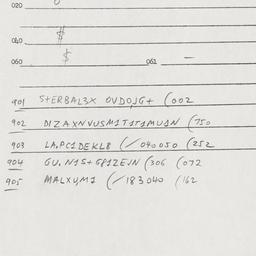 020
040 $
060 $ 061 —
901 S+ERBAL3X OVDO,JG+ (002
902 DIZAXNVUSM1T1T1MU1N (750
903 LA,PC1DEKL8 (/040050 (252
904 GU.N1S+GP1ZEJN (306 (072
905 MALXYM1 (/183040 (162